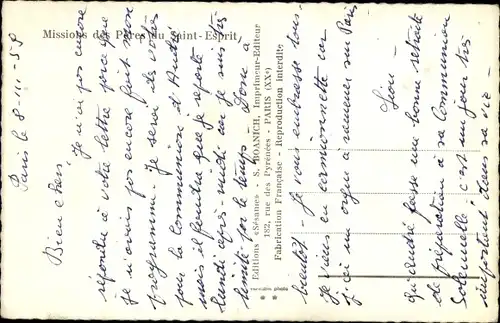 Missions des Pères du Saint-Esprit
Paris le 8- -58
Bien chers,
Je n'ai pas encore
répondu à votre lettre parce que
je n'avais pas encore fait mon
programme. Je serai des vôtres
pour la Communion d'André
mais il faudra que je reporte
lundi après-midi car je suis très
limité par le temps - Donc à
bientôt - Je vous embrasse tous -
Je viens en camionnette car
j'ai un orgue à ramener sur Paris
qu'André fasse une bonne retraite
de préparation à sa Communion
Solennelle, c'est un jour très
important dans sa vie -
Editions «Sésame» - S. ROANICH, Imprimeur-Editeur
182, rue des Pyrénées - PARIS (XXe)
Fabrication Française - Reproduction interdite
* *